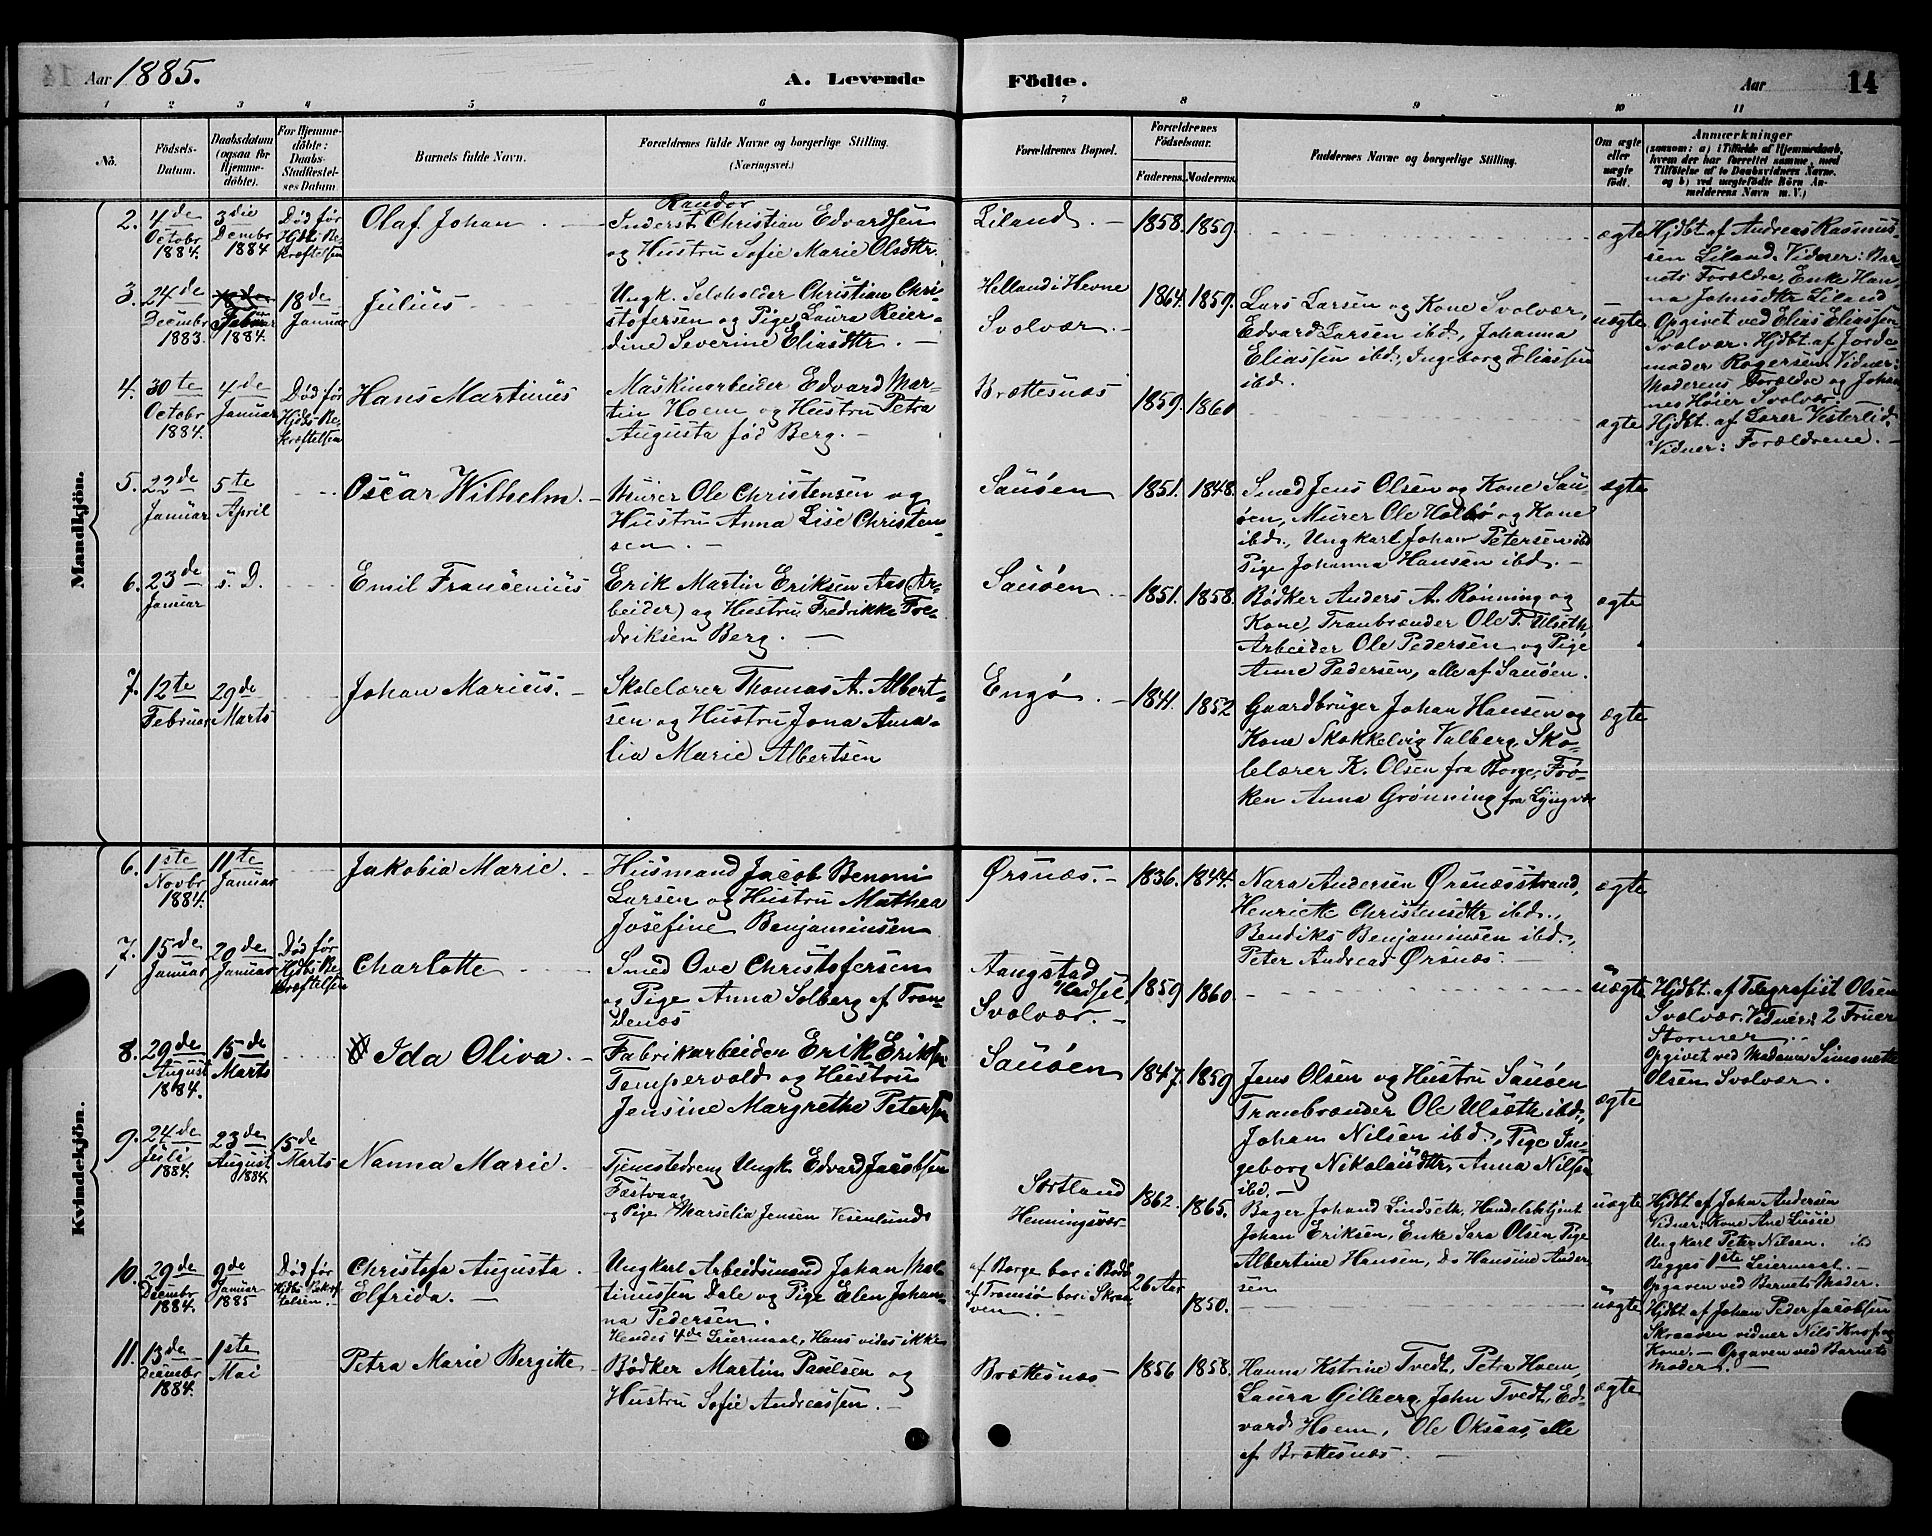 Aar 1885.
A. Levende
Födte.
Aar
14
1 2 3 4 5 6 7 8 9 10 11
No.
Födsels-
Datum.
Daabsdatum
(ogsaa for
Hjemme-
döbte).
For Hjemme-
döbte:
Daabs-
Stadfæstel-
ses Datum
Barnets fulde Navn.
Forældrenes fulde Navne og borgerlige Stilling.
(Næringsvei.)
Forældrenes Bopæl.
Forældrenes
Födselsaar.
Faderens. Moderens.
Faddernes Navne og borgerlige Stilling.
Om ægte
eller
uægte
født.
Anmærkninger
(saasom: a) i Tilfælde af Hjemmedaab,
hvem der har forrettet samme, med
Tilföielse af to Daabsvidners Navne.
og b) ved uægtefödte Börn An-
melderens Navn m. V.)
Mandkjön.
2. 4de
Octobr
1884.
3die
Dcembr
1884
Død før
Hjdbs Be-
kræftelsen
Olaf Johan
Randor
Inderst Christian Edvardsen
og Hustru Sofie Marie Olsdttr.
Liland
1858. 1859.
ægte
Hjdbt. af Andreas Rasmus-
sen Liland. Vidner: Bar-
nets Forældre, Enke Han-
na Johnsdttr Liland
3. 24de
Decembr
1883.
Februar
1884.
18de
Januar
Julius
Ungk. Selvholder Christian Chri-
stofersen og Pige Laura Reier-
dine Severine Eliasdttr.
Helland i Hevne
Svolvær.
1864. 1859.
Lars Larsen og Kone Svolvær,
Edvard Larsen ibd., Johanna
Eliassen ibd., Ingeborg Eliassen
ibd.
uægte
Opgivet ved Elias Eliassen
Svolvær. Hjdbt. af Jorde-
moder Rogersen. Vidner:
Moderens Forældre og Johan-
nes Høier Svolvær.
4. 30te
Octobr
1884.
4de
Januar
Død før
Hjdbs Be-
kræftelsen
Hans Martinus
Maskinarbeider Edvard Mar-
tin Hoem og Hustru Petra
Augusta fød Berg.
Brættesnæs
1859. 1860
ægte
Hjdbt. af Lærer Vesterlid.
Vidner: Forældrene.
5. 22de
Januar
5te
April
Oscar Wilhelm.
Murer Ole Christensen og
Hustru Anna Lise Christen-
sen.
Sauøen
1851. 1848.
Smed Jens Olsen og Kone Sau-
øen, Murer Ole Holbø og Kone
ibd., Ungkarl Johan Petersen ibd
Pige Johanna Hansen ibd.
ægte
6. 23de
Januar
s. D.
Emil Francenius
Erik Martin Eriksen Aas (Ar-
beider) og Hustru Fredrikke Fre-
driksen Berg.
Sauøen
1851. 1858.
Bødker Anders A. Rønning og
Kone, Tranbrænder Ole T. Ulseth,
Arbeider Ole Pedersen og Pige
Anne Pedersen, alle af Sauøen.
ægte
7. 12te
Februar
29de
Marts
Johan Marius.
Skolelærer Thomas A. Albert-
sen og Hustru Jona Ama-
lia Marie Albertsen
Engø
1841. 1852
Gaardbruger Johan Hansen og
Kone Skokkelvig Valberg, Sko-
lelærer K. Olsen fra Borge, Frø-
ken Anna Grønning fra Lyngvær
ægte
Kvindekjön.
6. 1ste
Novbr
1884.
11te
Januar
Jakobia Marie.
Husmand Jacob Benoni
Larsen og Hustru Mathea
Josefine Benjaminsen
Ørsnæs.
1836. 1844.
Nara Andersen Ørsnæsstrand,
Henriette Christensdttr ibd.,
Bendiks Benjaminsen ibd.,
Peter Andreas Ørsnæs.
ægte
7. 15de
Januar
20de
Januar
Død før
Hjdbs Be-
kræftelsen
Charlotte
Smed Ove Christofersen
og Pige Anna Solberg af Tron-
denæs
Aangstad
Hadsel
Svolvær.
1859 1860
uægte
Hjdbt. af Telegrafist Olsen
Svolvær. Vidner: 2 Fruer
Stormer.
Opgivet ved Madame Simonette
Olsen Svolvær.
8. 29de
August
1884.
15de
Marts
Ida Oliva.
Fabrikarbeider Erik Eriksen
Tempervold og Hustru
Jensine Margrethe Petersen
Sauøen
1847. 1859
Jens Olsen og Hustru Sauøen
Tranbrænder Ole Ulseth ibd.,
Johan Nilsen ibd., Pige In-
geborg Nikolaisdttr, Anna Nilsen
ibd.
ægte
9. 24de
Juli
1884.
23de
August
1884
15de
Marts
Nanna Marie.
Tjenestedreng Ungk. Edvard Jacobsen
Festvaag
og Pige Marselia Jensen Vesenlund
Sortland
Henningsvær
1862. 1865.
Bager Johand Lindseth, Handelsbetjent
Johan Eriksen, Enke Sara Olsen Pige
Albertine Hansen, Do Hansine Ander-
sen
uægte
Hjdbt af John Andersen
Vidner: Kone Ane Lusie
Ungkarl Peter Nilsen. ibd
Begges 1ste Leiermaal.
Opgaven ved Barnets Moder.
10. 29de
Decembr
1884.
9de
Januar
1885
Død før
Hjdbs Bekræf-
telsen.
Christofa Augusta
Elfrida.
Ungkarl Arbeidsmand Johan Mar-
tinussen Dale og Pige Elen Johan-
na Pedersen.
Hendes 4de Leiermaal, Hans vides ikke
af Borge bor i Bodø
af Tromsø bor i Skraa-
ven
26 Aar
1850.
uægte
Hjdbt af Johan Peder Jacobsen
Skraaven vidner Nils Knop og
Kone. Opgaven ved Barnets
Moder.
11. 13de
Decembr
1884.
1ste
Mai
Petra Marie Bergitte
Bødker Martin Paulsen og
Hustru Sofie Andreassen.
Brættesnæs
1856 1858.
Hanna Katrine Tvedt, Petra Hoem,
Laura Gilberg, John Tvedt, Ed-
vard Hoem, Ole Oksaas, alle
af Brættesnæs.
ægte